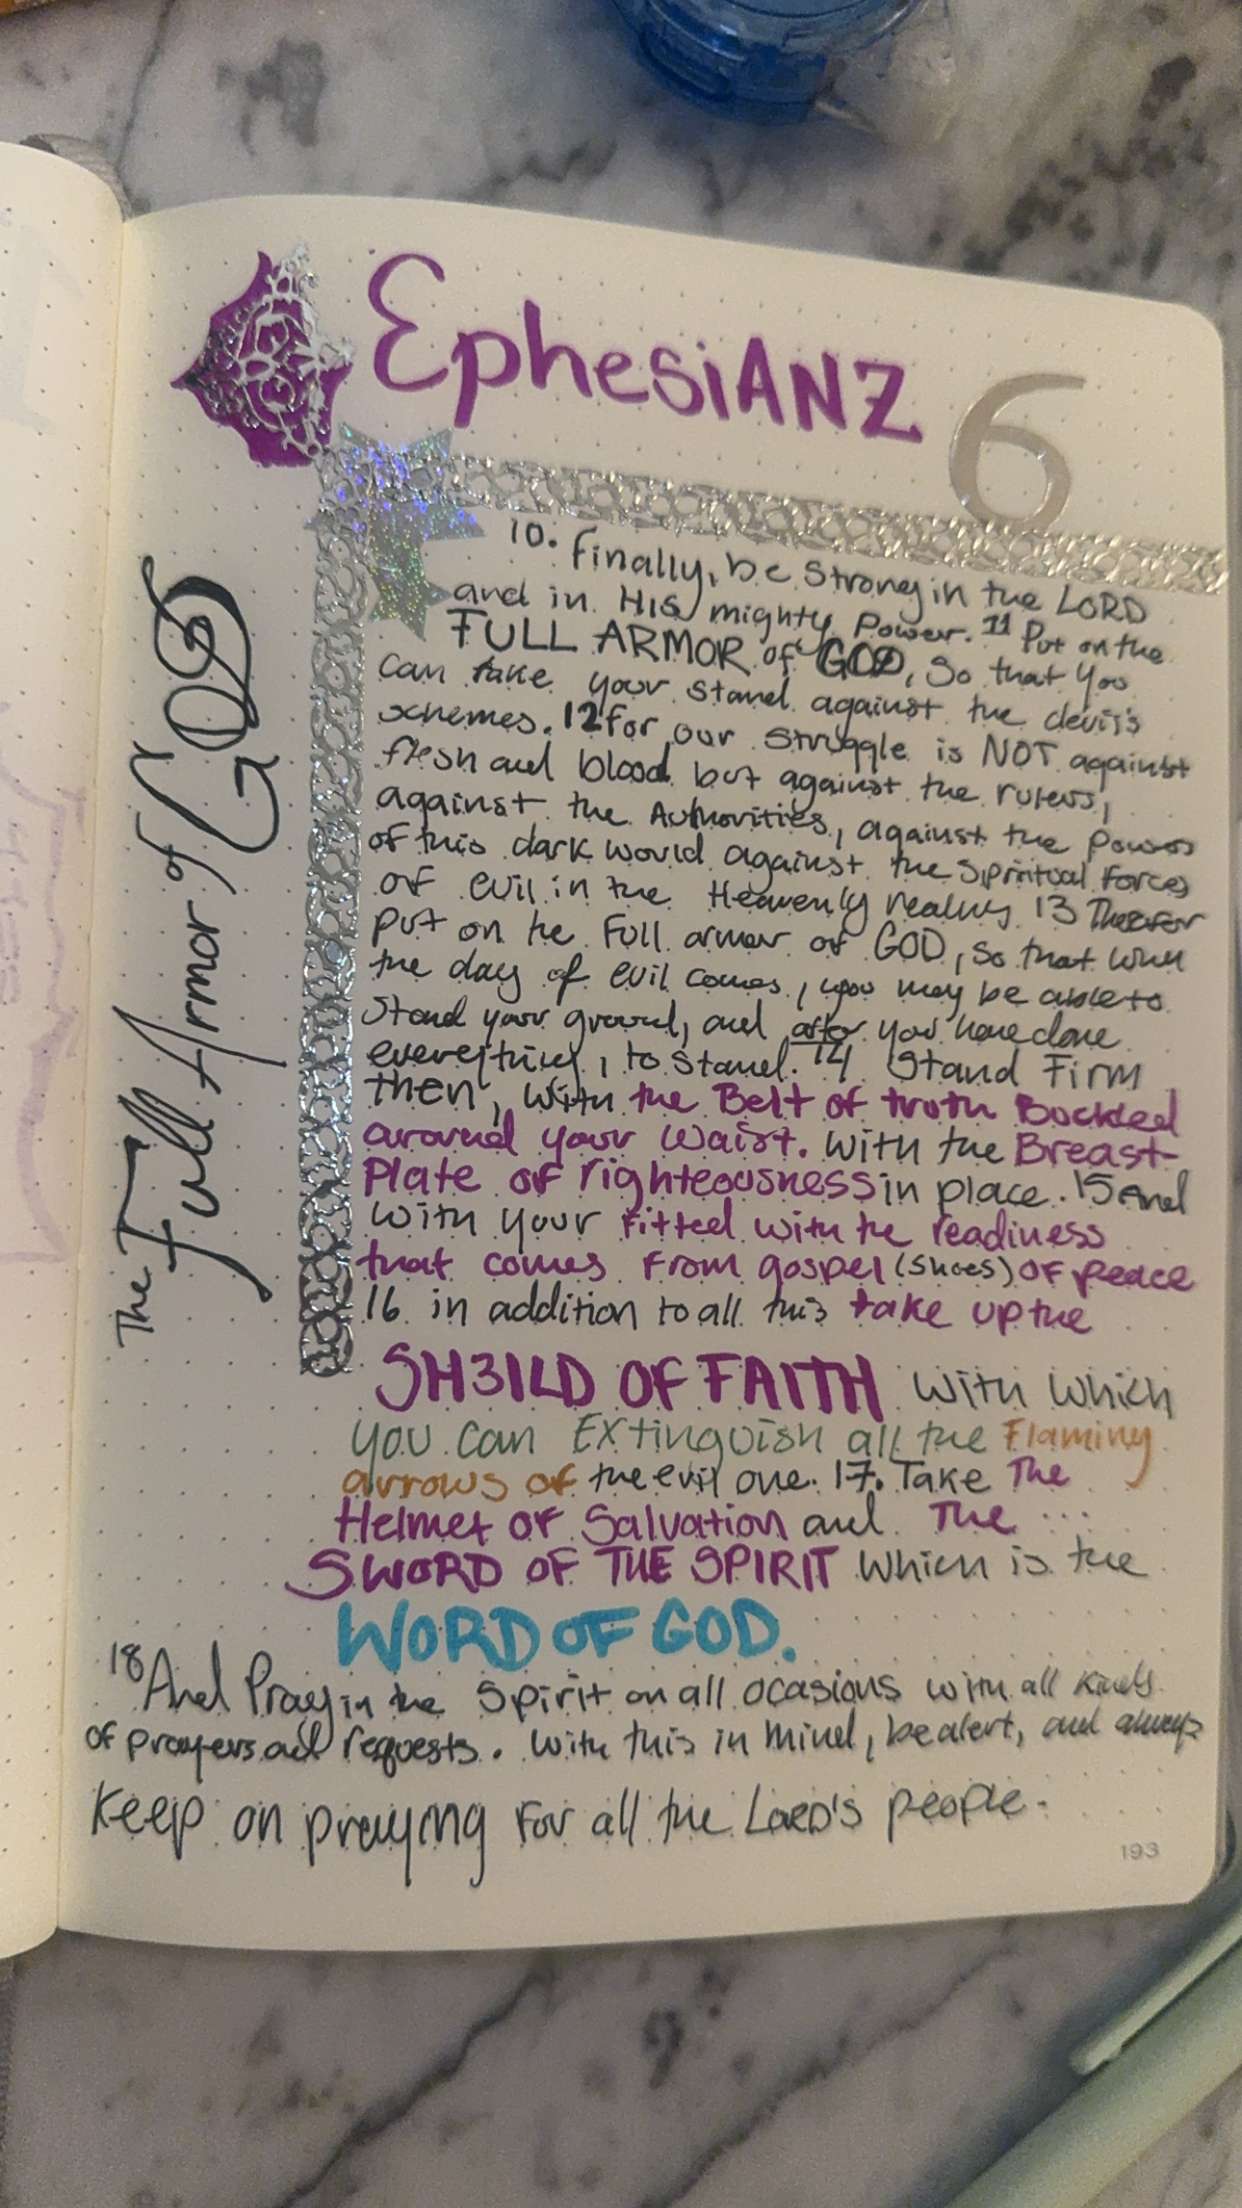 EphesiANZ 6
The Full Armor of GOD
10. Finally, be strong in the LORD
and in HIS mighty Power. 11 Put on the
FULL ARMOR of GOD, so that you
can take your stand against the devil's
schemes. 12 For our struggle is NOT against
flesh and blood but against the rulers,
against the Authorities, against the Powers
of this dark world against the Spiritual Forces
of evil in the Heavenly realms 13 Therefor
put on the Full armor of GOD, so that when
the day of evil comes, you may be able to
stand your ground, and after you have done
everything, to stand. 14 Stand Firm
then, with the Belt of truth Buckled
around your waist. With the Breast-
Plate of righteousness in place. 15 And
with your Fitted with the readiness
that comes from gospel (shoes) of peace
16 in addition to all this take up the
SH3ILD OF FAITH with which
you can Extinguish all the Flaming
arrows of the evil one. 17. Take The
Helmet of Salvation and The ...
SWORD OF THE SPIRIT which is the
WORD OF GOD.
18 And Pray in the Spirit on all ocasions with all kinds
of prayers and requests. With this in mind, be alert, and always
Keep on praying For all the Lord's people.
193